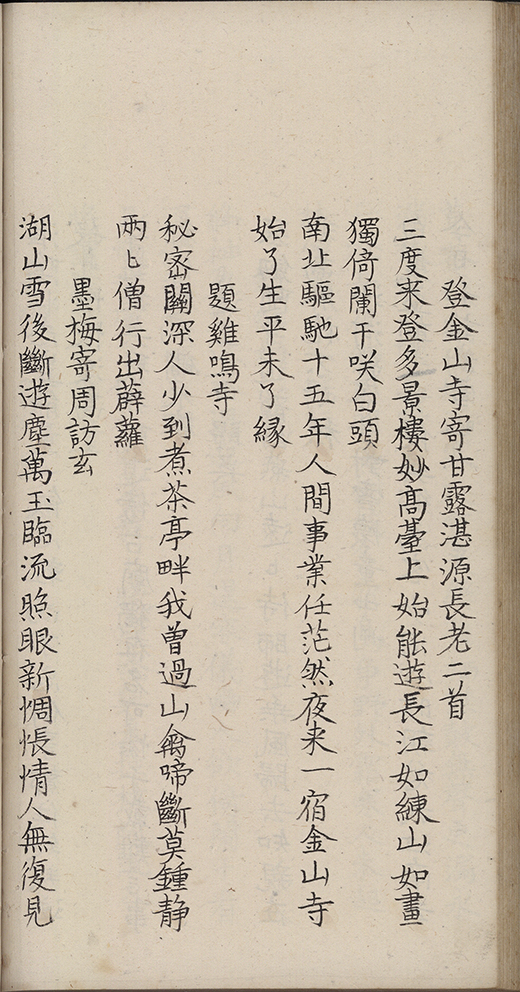 登金山寺寄甘露湛源長老二首
三度来登多景樓妙髙臺上始能遊長江如練山如畫
獨倚闌干咲白頭
南北驅馳十五年人間事業任茫然夜来一宿金山寺
始了生平未了縁
題雞鳴寺
秘宻關深人少到煮茶亭畔我曾過山禽啼斷莫鍾静
兩〻僧行出薜蘿
墨梅寄周訪玄
湖山雪後斷遊塵萬玉臨流照眼新惆悵情人無復見